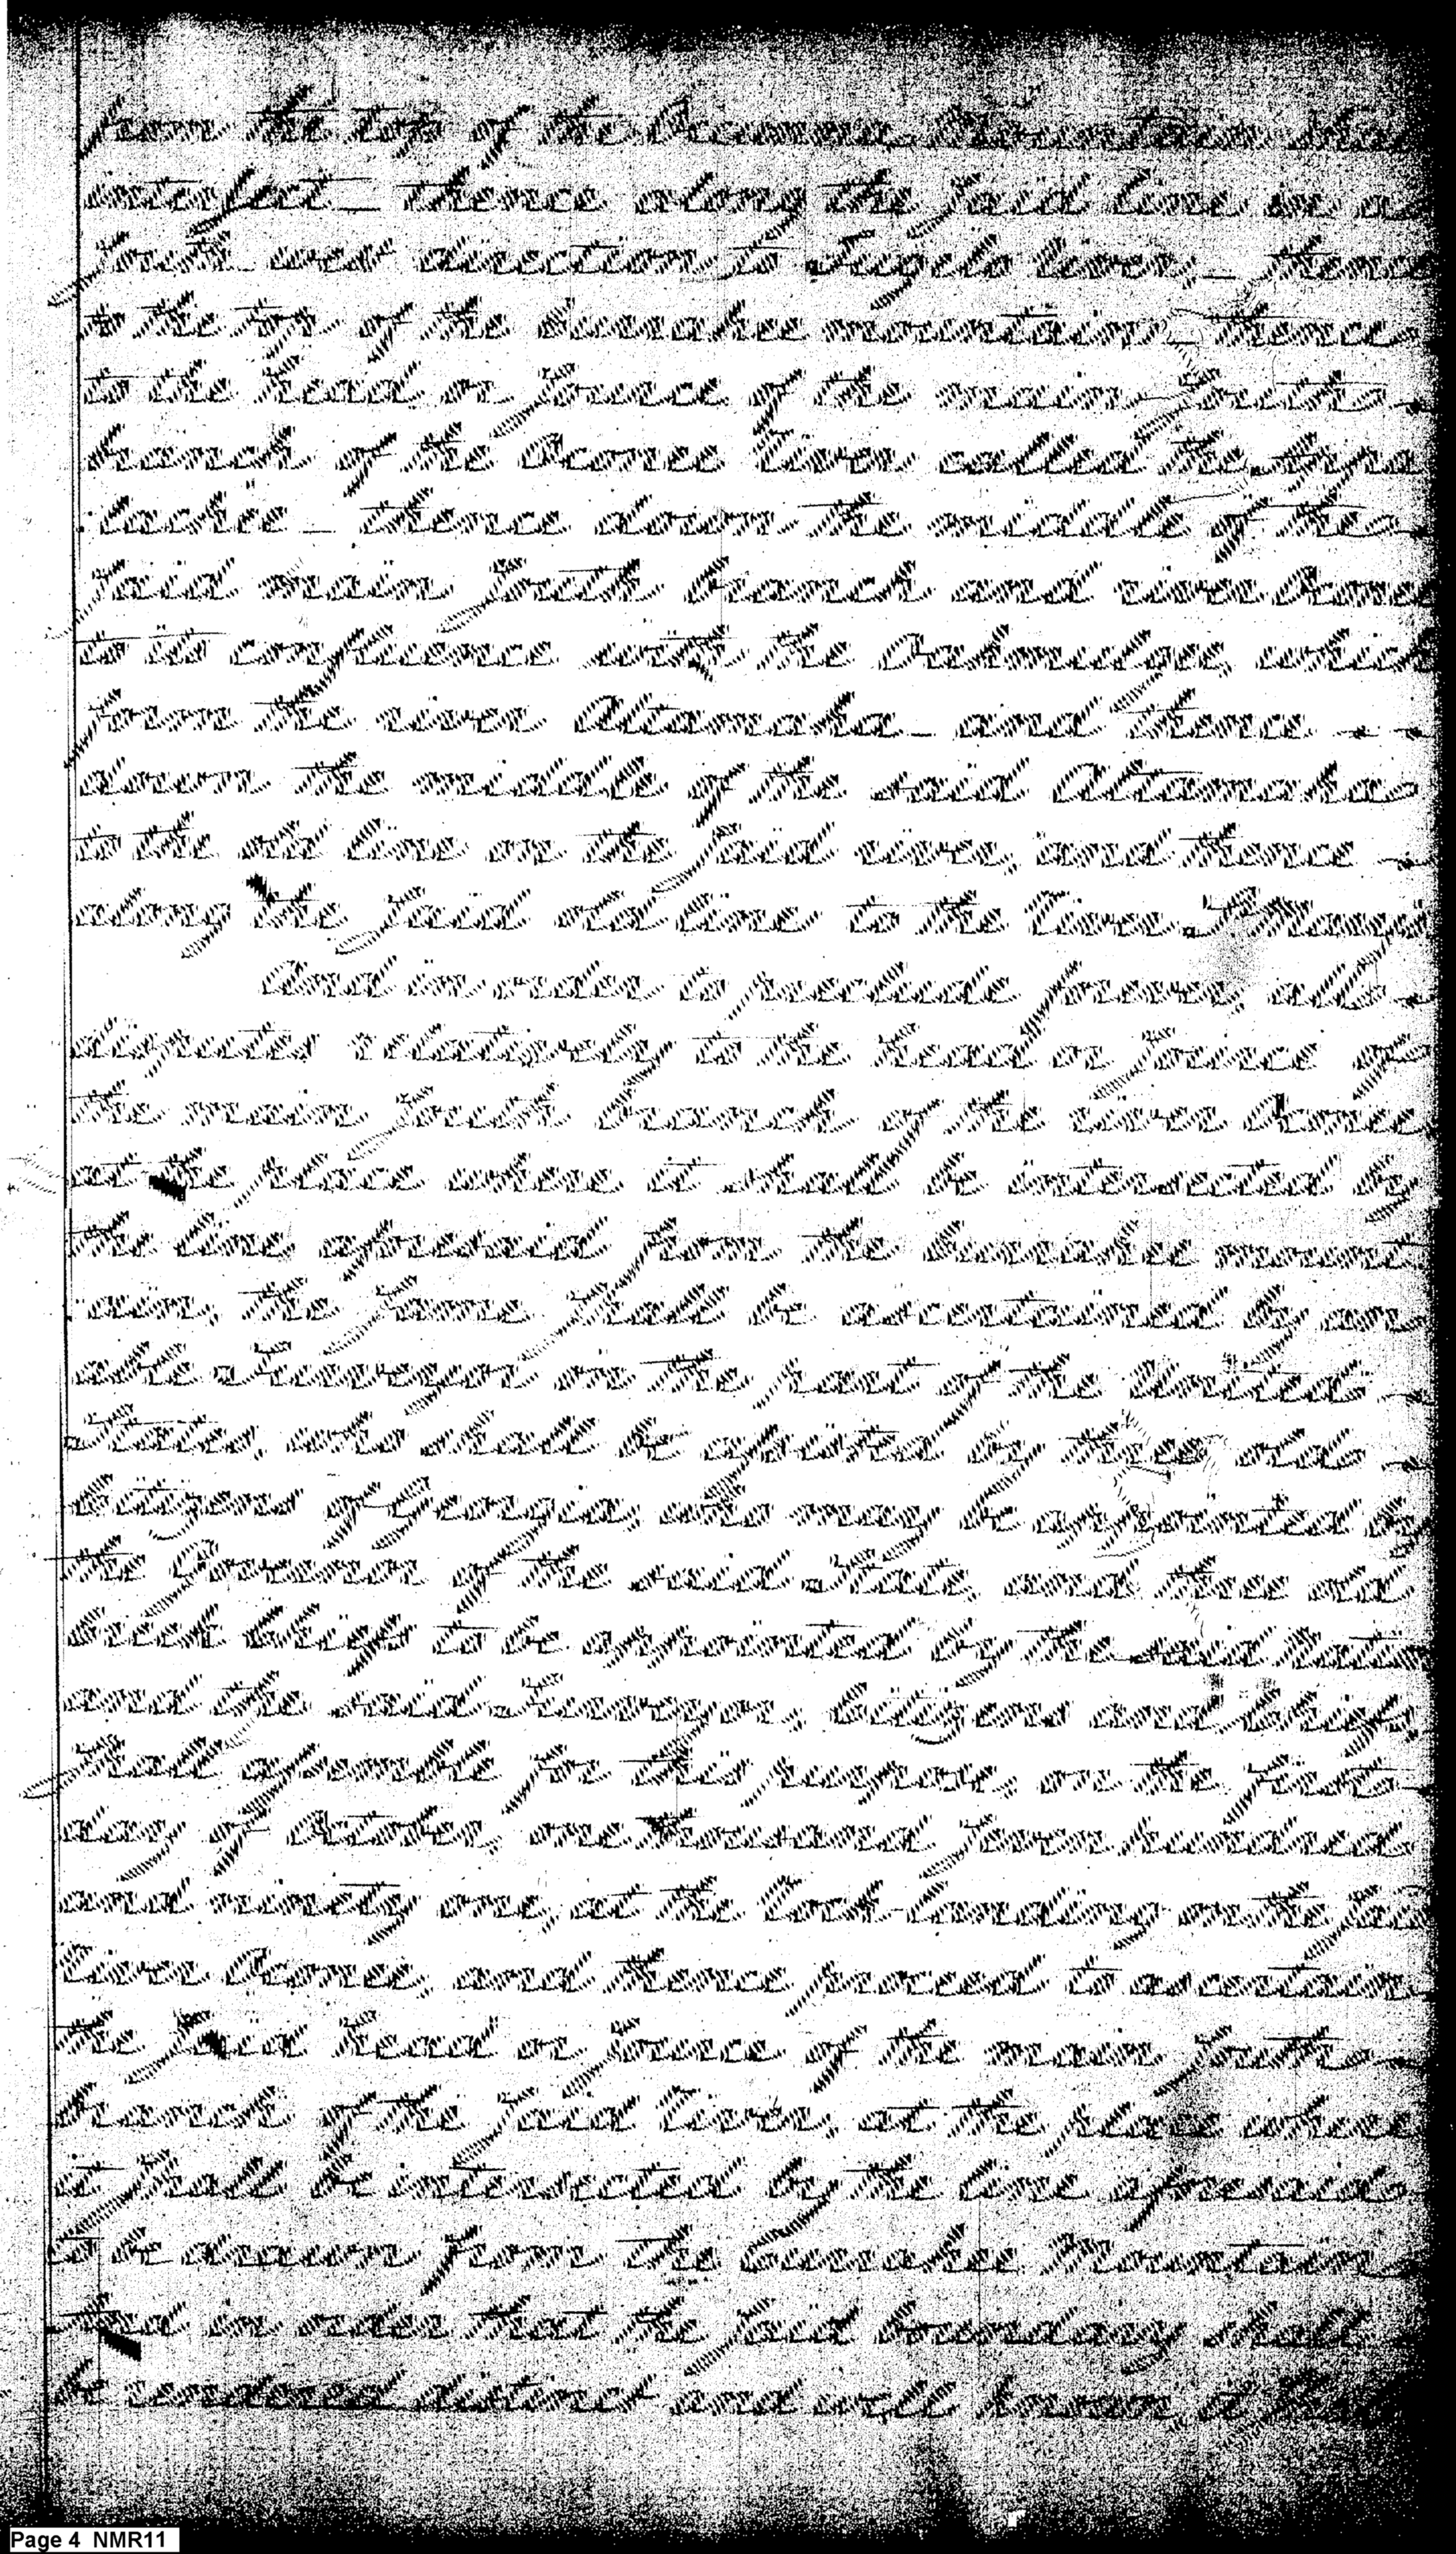 from the top of the Occunna Mountain shall
intersect _ thence along the said line in a
South west direction to Tugelo River; _ thence
to the top of the Currahee mountain _ thence
to the head or Source of the main South
branch of the Oconee River called the Appa
lachee _ thence down the middle of the
said main South branch and river Oconee
to its confluence with the Oakmulgee, which
form the river Altamaha _ and thence _ _
down the middle of the said Altamaha
to the old line on the said river, and thence _
along the said old line to the River St Marys
And in order to preclude forever, all _
disputes relatively to the head or source of
the main South branch of the river Oconee
at the place where it shall be intersected by
the line aforesaid from the Currahee mount
ain, the same shall be ascertained by an
able Surveyor on the part of the United _
States, who shall be assisted by three old _
Citizens of Georgia, who may be appointed by
the Governor of the said State, and three old
Creek Chiefs to be appointed by the said Nation
and the said Surveyor, Citizens and Chiefs
shall assemble for this purpose, on the first
day of October, one thousand seven hundred
and ninety one, at the Rock-landing on the said
River Oconee, and thence proceed to ascertain
the said head or source of the main South _
branch of the said River, at the place where
it shall be intersected by the line aforesaid
to be drawn from the Currahee Mountain
And in order that the said boundary shall
be rendered distinct and well known, it shall
Page 4 NMR11